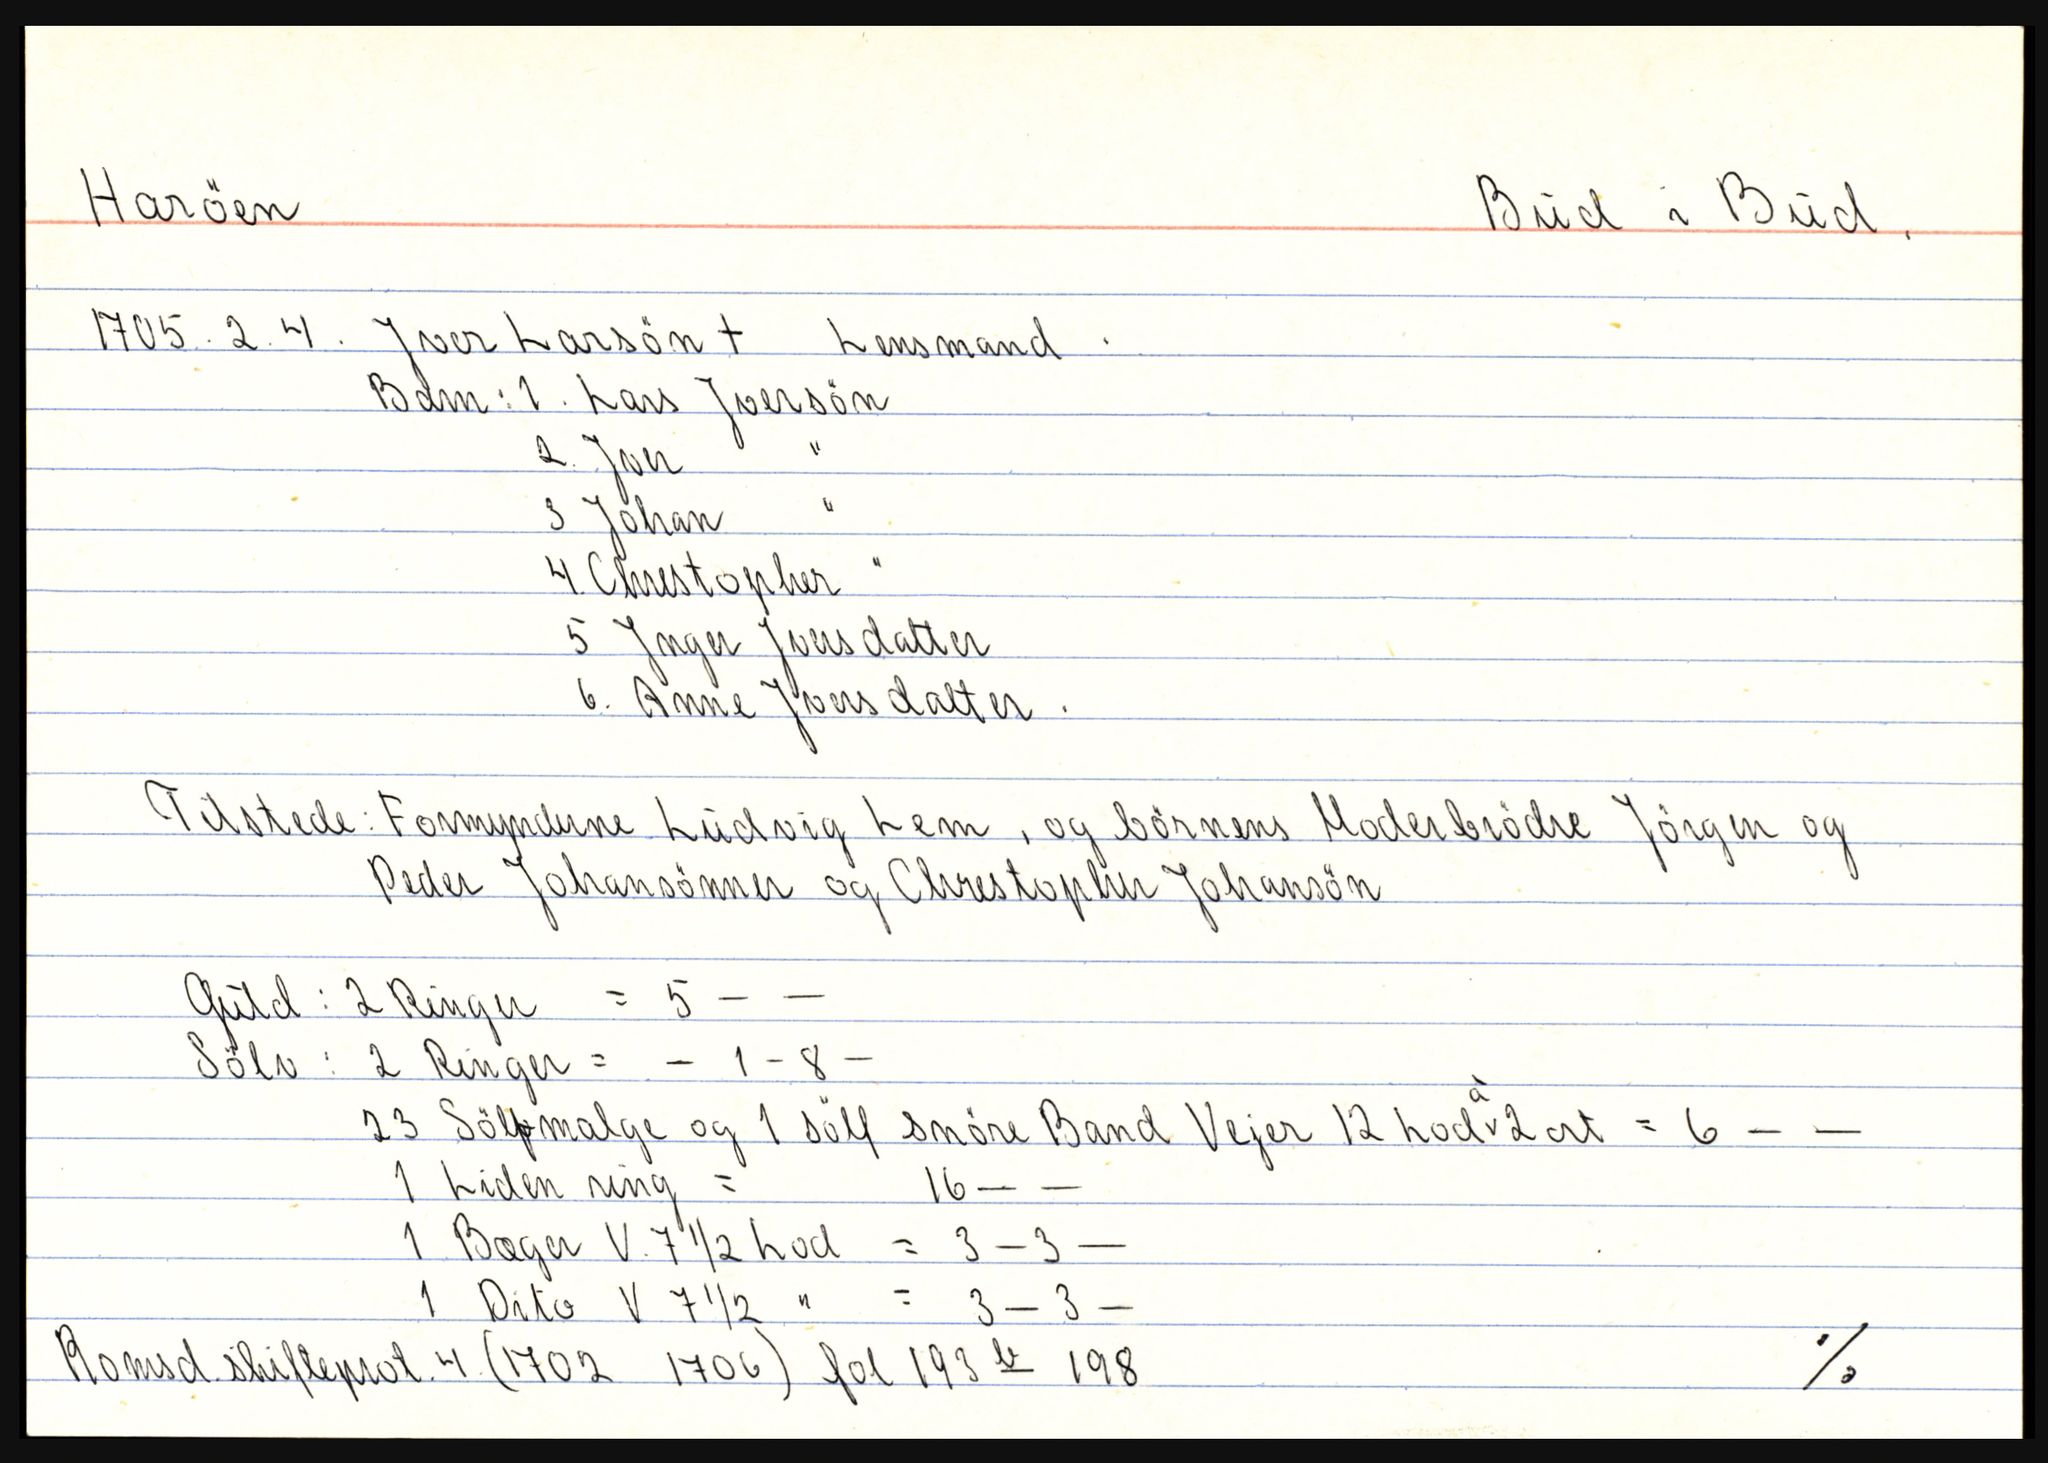 Haröen Bud i Bud.
1705. 2. 4. Jver Larsön + Lensmand.
Barn: 1. Lars Jversön
2. Jver "
3 Johan "
4. Chrestopher "
5 Jnger Jversdatter
6. Anne Jversdatter.
Tilstede: Formynderne Ludvig Lem, og börnens Moderbrödre Jörgen og
Peder Johansönner og Chrestopher Johansön
Guld: 2 Ringer = 5 – –
Sölv: 2 Ringer = – 1 – 8 –
23 Sölfmalge og 1 sölf snöre Band Vejer 12 Lod à 2 ort = 6 – –
1 Liden ring = 16 – –
1 Bæger V. 7 1/2 Lod = 3 – 3 –
1 Dito V 7 1/2 " = 3 – 3 –
Romsd. skifteprot. 4. (1702 1706) fol 193 b 198
./.